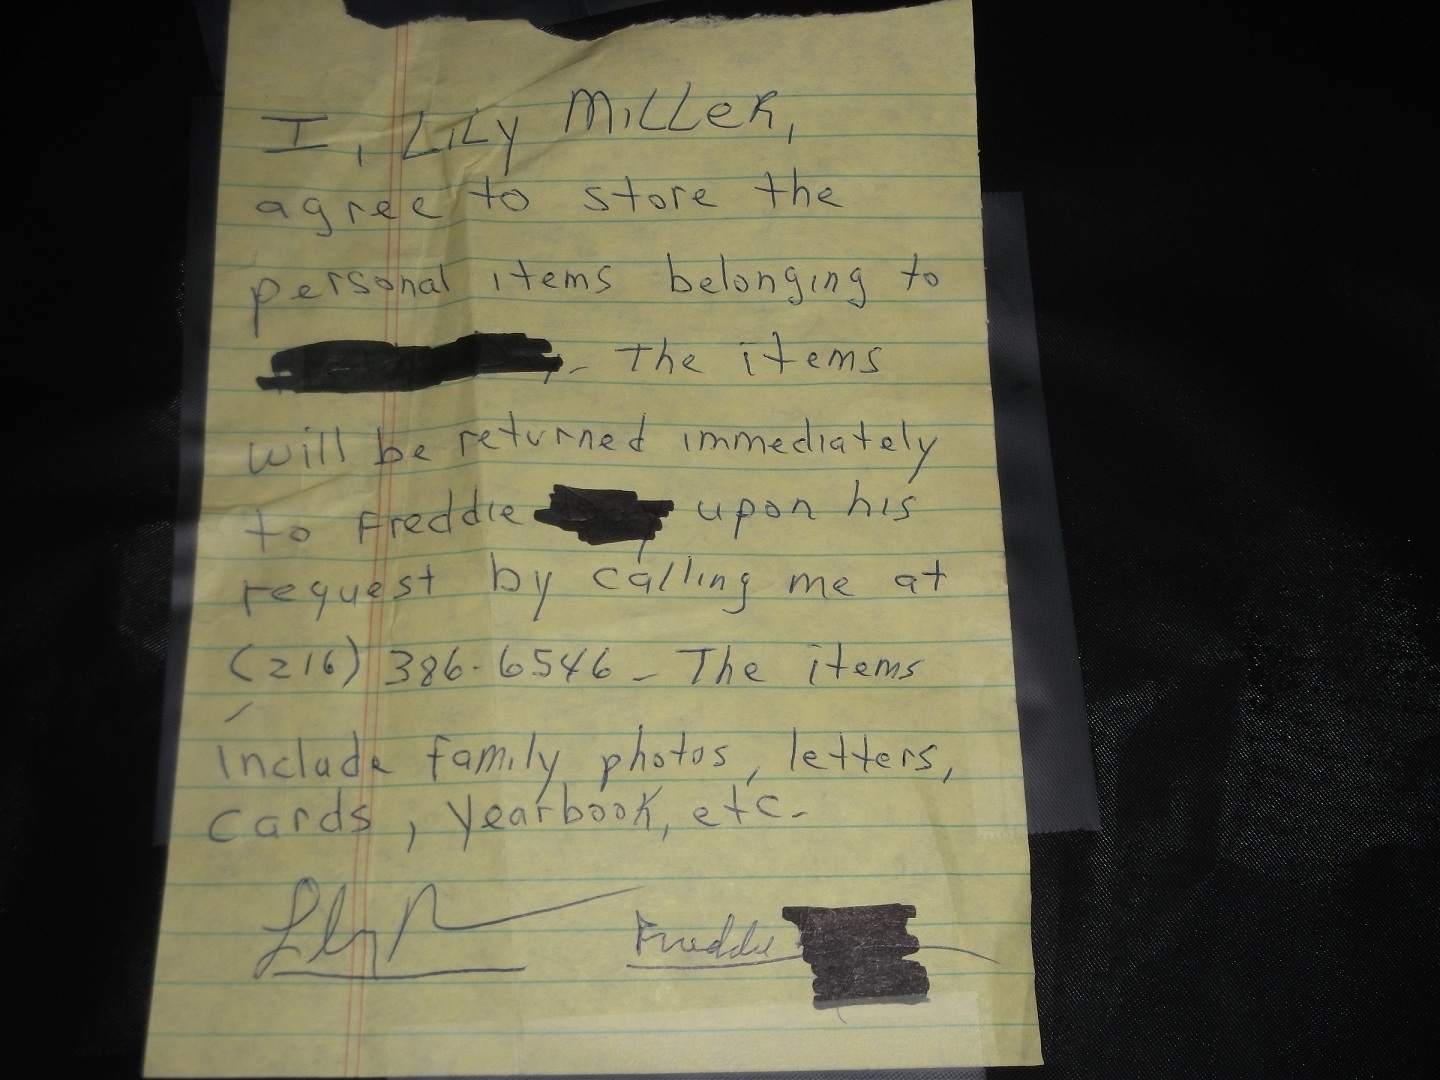 I, Lily Miller,
agree to store the
personal items belonging to
. The items
will be returned immediately
to Freddie upon his
request by calling me at
(216) 386-6546 - The items
include family photos, letters,
cards, yearbook, etc.
Freddie